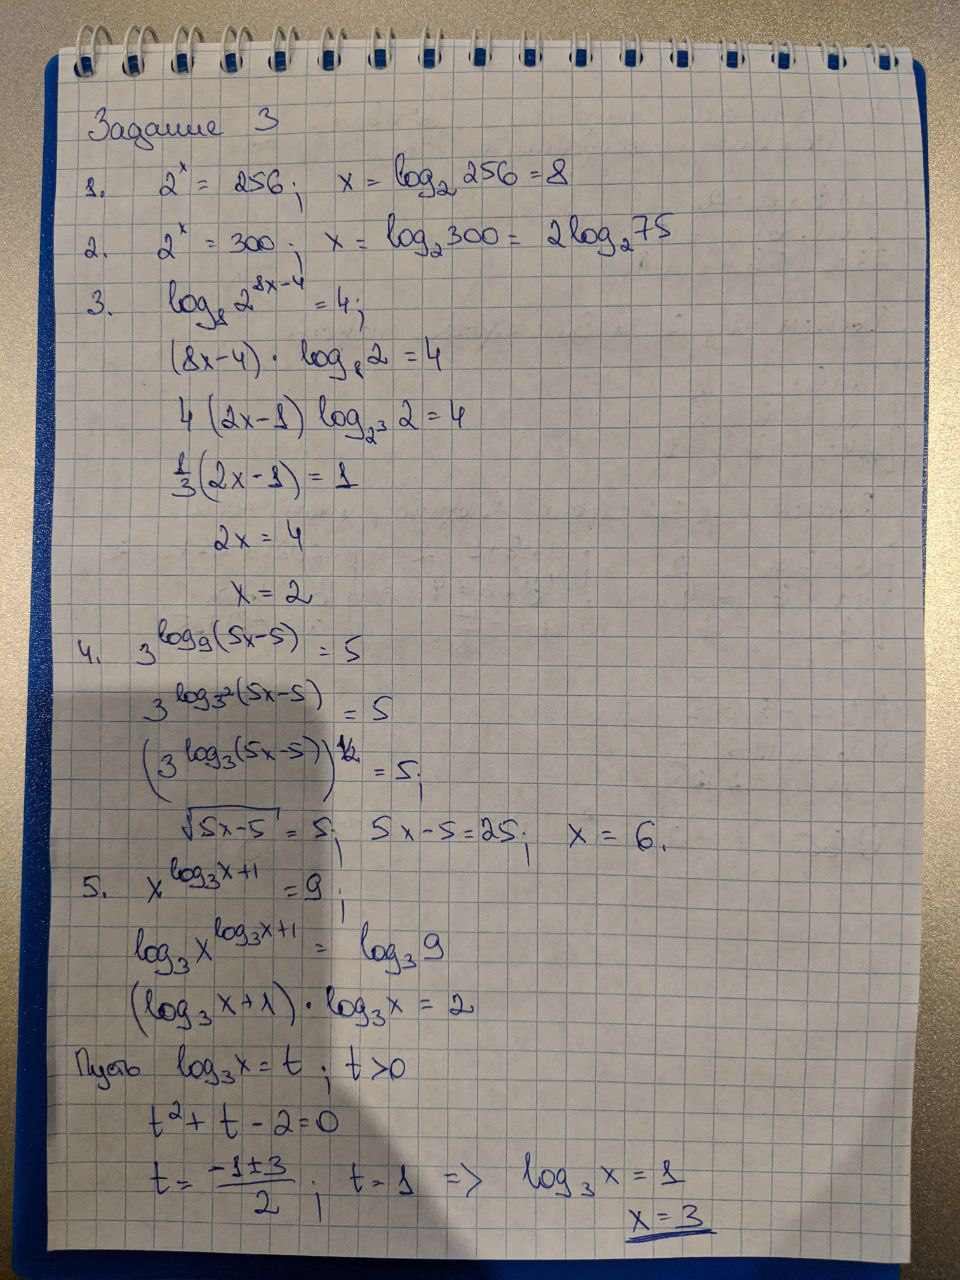 Задание 3
1. 2^x = 256; x = log_2 256 = 8
2. 2^x = 300; x = log_2 300 = 2log_2 75
3. log_8 2^(8x-4) = 4;
(8x-4) · log_8 2 = 4
4(2x-1) log_(2^3) 2 = 4
1/3(2x-1) = 1
2x = 4
x = 2
4. 3^(log_9(5x-5)) = 5
3^(log_(3^2)(5x-5)) = 5
(3^(log_3(5x-5)))^(1/2) = 5;
√(5x-5) = 5; 5x-5=25; x = 6.
5. x^(log_3 x+1) = 9;
log_3 x^(log_3 x+1) = log_3 9
(log_3 x+1) · log_3 x = 2
Пусть log_3 x = t; t>0
t^2 + t - 2 = 0
t = (-1±3)/2; t = 1 => log_3 x = 1
x = 3